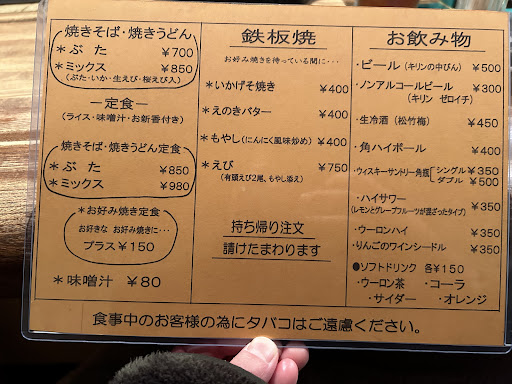 焼きそば・焼きうどん
＊ぶた ￥700
＊ミックス ￥850
(ぶた・いか・生えび・桜えび入)
－定食－
(ライス・味噌汁・お新香付き)
焼きそば・焼きうどん定食
＊ぶた ￥850
＊ミックス ￥980
＊お好み焼き定食
お好きな お好み焼きに･･･
プラス￥150
＊味噌汁 ￥80
鉄板焼
お好み焼きを待っている間に･･･
＊いかげそ焼き ￥400
＊えのきバター ￥400
＊もやし(にんにく風味炒め) ￥400
＊えび ￥750
(有頭えび2尾、もやし添え)
持ち帰り注文
請けたまわります
お飲み物
・ビール(キリンの中びん) ￥500
・ノンアルコールビール ￥300
(キリン ゼロイチ)
・生冷酒(松竹梅) ￥450
・角ハイボール ￥400
・ウィスキーサントリー角瓶 シングル￥350
ダブル ￥500
・ハイサワー ￥350
(レモンとグレープフルーツが混ざったタイプ)
・ウーロンハイ ￥350
・りんごのワインシードル ￥350
●ソフトドリンク 各￥150
・ウーロン茶 ・コーラ
・サイダー ・オレンジ
食事中のお客様の為にタバコはご遠慮ください。